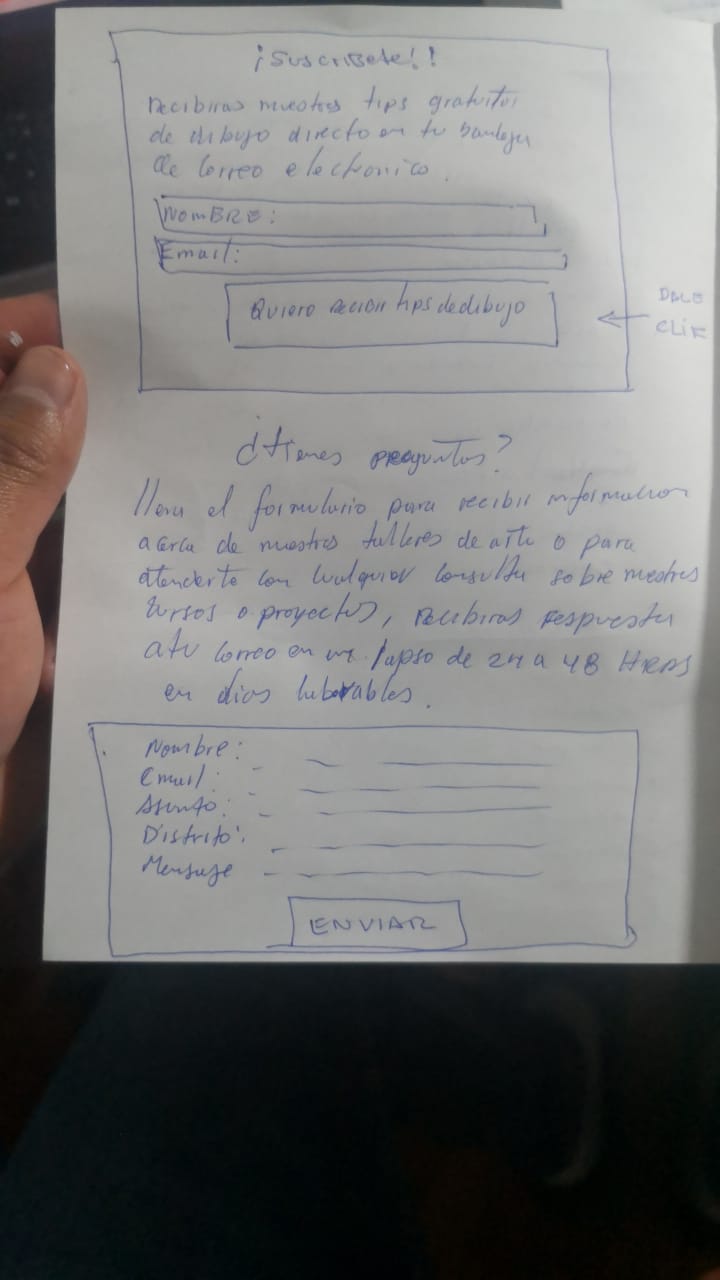 ¡Suscribete!!
recibiras nuestros tips gratuitos
de dibujo directo en tu bandeja
de correo electronico.
NOMBRE:
Email:
Quiero recibir tips de dibujo
DALE
CLIK
¿tienes preguntas?
llena el formulario para recibir informacion
acerca de nuestros talleres de arte o para
atenderte con cualquier consulta sobre nuestros
cursos o proyectos, recibiras respuesta
a tu correo en un lapso de 24 a 48 HRAS
en dias laborables.
Nombre:
Email:
Asunto:
Distrito:
Mensaje
ENVIAR